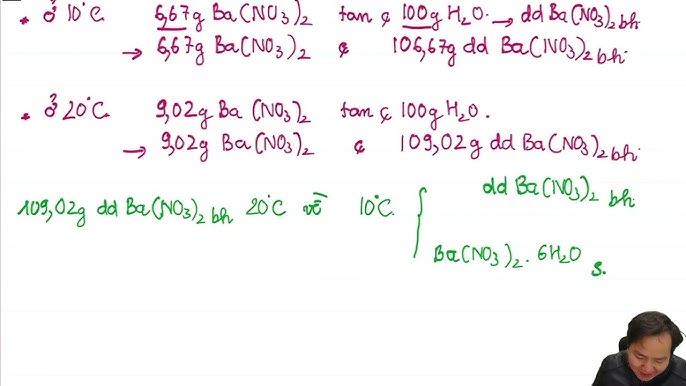 • ở 10°C. 6,67g Ba(NO3)2 tan ç 100g H2O. → dd Ba(NO3)2 bh
→ 6,67g Ba(NO3)2 ç 106,67g dd Ba(NO3)2 bh.
• ở 20°C. 9,02g Ba(NO3)2 tan ç 100g H2O.
→ 9,02g Ba(NO3)2 ç 109,02g dd Ba(NO3)2 bh.
dd Ba(NO3)2 bh
109,02g dd Ba(NO3)2 bh 20°C về 10°C. {
Ba(NO3)2. 6H2O